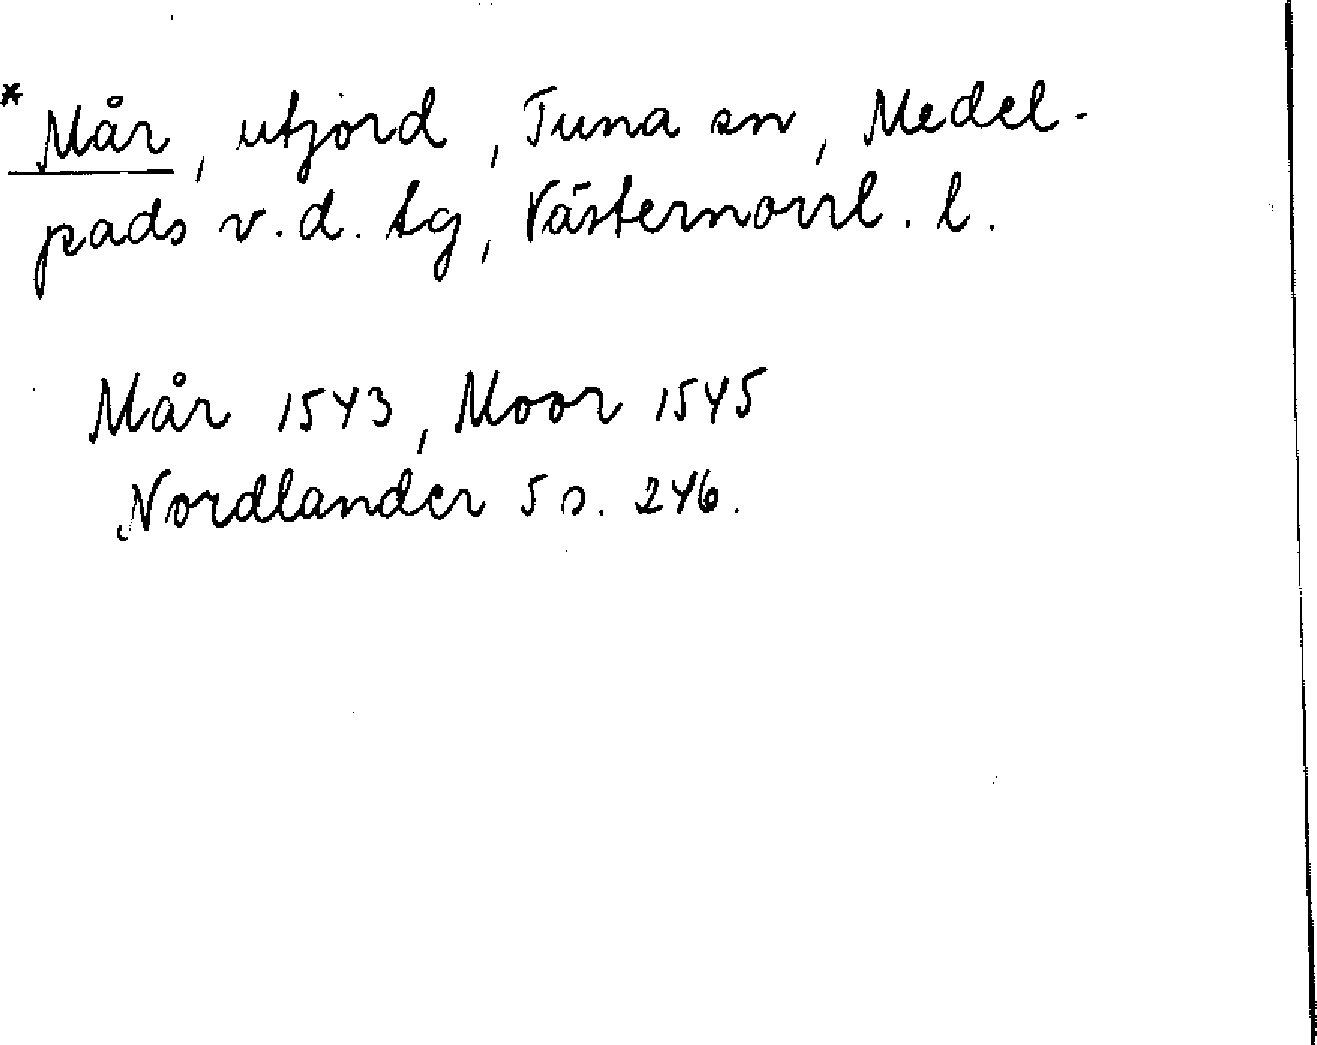 * Mår, utjord, Tuna sn, Medel-
pads v.d. tg, Västernorrl. l.
Mår 1543, Moor 1545
Nordlander 5 s. 246.